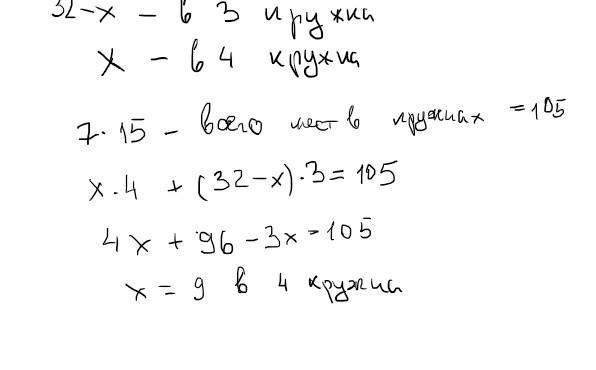 32-x - в 3 кружка
x - в 4 кружка
7·15 - всего мест в кружках =105
x·4 + (32-x)·3=105
4x + 96-3x=105
x = 9 в 4 кружка